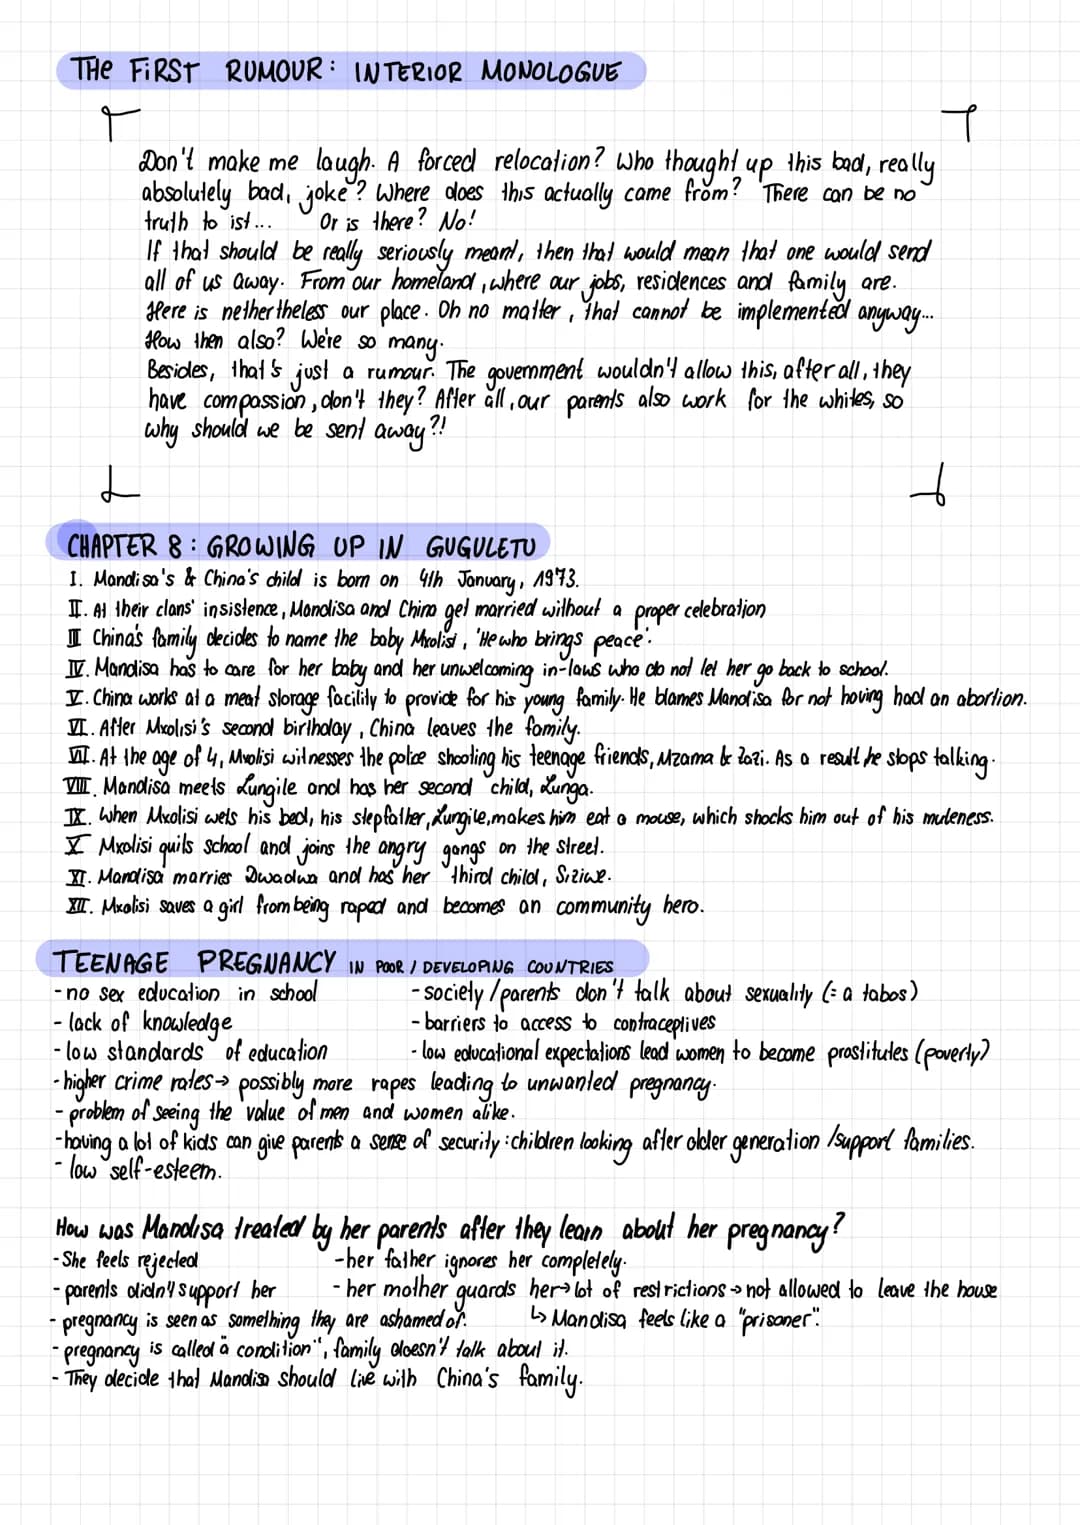 THE FIRST RUMOUR: INTERIOR MONOLOGUE
Don't make me laugh. A forced relocation? Who thought up this bad, really
absolutely bad, joke? Where does this actually came from? There can be no
truth to ist... Or is there? No!
If that should be really seriously meant, then that would mean that one would send
all of us away. From our homeland, where our jobs, residences and family are.
Here is nethertheless our place. Oh no matter, that cannot be implemented anyway...
How then also? We're so many.
Besides, that's just a rumour. The government wouldn't allow this, after all, they
have compassion, don't they? After all, our parents also work for the whites, so
why should we be sent away?!
CHAPTER 8: GROWING UP IN GUGULETU
I. Mandisa's & China's child is born on 4th January, 1973.
II. At their clans' insistence, Mandisa and China get married without a proper celebration
III China's family decides to name the baby Mxolisi, 'He who brings peace'.
IV. Mandisa has to care for her baby and her unwelcoming in-laws who do not let her go back to school.
V. China works at a meat storage facility to provide for his young family. He blames Mandisa for not having had an abortion.
VI. After Mxolisi's second birthday, China leaves the family.
VII. At the age of 4, Mxolisi witnesses the police shooting his teenage friends, Mzama & Zazi. As a result he stops talking.
VIII. Mandisa meets Lungile and has her second child, Lunga.
IX. When Mxolisi wets his bed, his stepfather, Lungile, makes him eat a mouse, which shocks him out of his muteness.
X Mxolisi quits school and joins the angry gangs on the street.
XI. Mandisa marries Dwadwa and has her third child, Siziwe.
XII. Mxolisi saves a girl from being raped and becomes an community hero.
TEENAGE PREGNANCY IN POOR / DEVELOPING COUNTRIES
- no sex education in school - society / parents don't talk about sexuality (= a tabos)
- lack of knowledge - barriers to access to contraceptives
- low standards of education - low educational expectations lead women to become prostitutes (poverty)
- higher crime rates → possibly more rapes leading to unwanted pregnancy.
- problem of seeing the value of men and women alike.
- having a lot of kids can give parents a sense of security: children looking after older generation / support families.
- low self-esteem.
How was Mandisa treated by her parents after they learn about her pregnancy?
- She feels rejected - her father ignores her completely.
- parents didn't support her - her mother guards her → lot of restrictions → not allowed to leave the house
- pregnancy is seen as something they are ashamed of. ↳ Mandisa feels like a "prisoner".
- pregnancy is called "a condition", family doesn't talk about it.
- They decide that Mandisa should live with China's family.